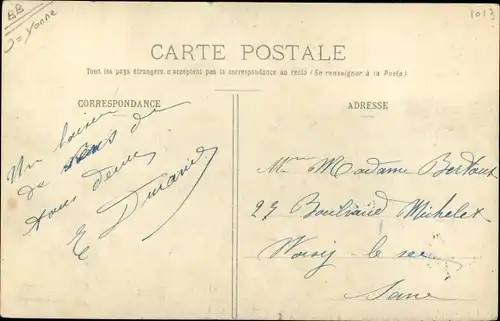 BB
Yonne
1013
CARTE POSTALE
Tout les pays étrangers n'acceptent pas la correspondance au recto (Se renseigner à la Poste)
CORRESPONDANCE
ADRESSE
Un baiser
de de
tous deux
E Durand
Madame
27 Boulvard Michelet
Noisy-le-sec
Seine